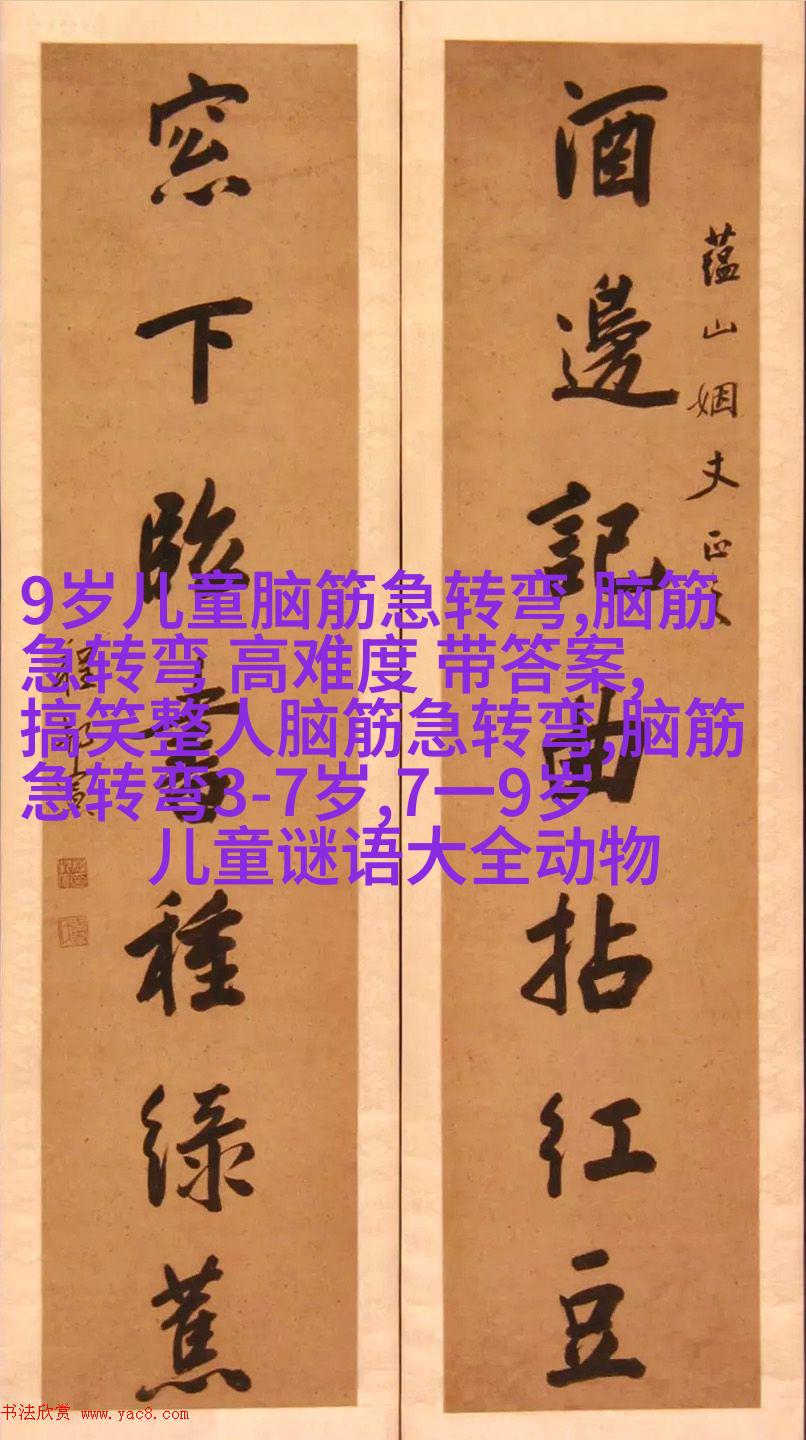 酒邊記曲拈紅豆
蘊山姻丈正
窓下臨書種綠蕉
程
9岁儿童脑筋急转弯,脑筋
急转弯 高难度 带答案,
搞笑整人脑筋急转弯,脑筋
急转弯3-7岁,7一9岁
儿童谜语大全动物
书法欣赏 www.yac8.com